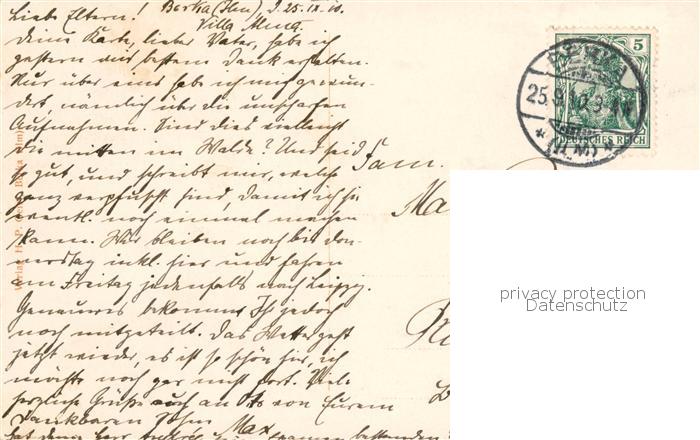 Liebe Eltern! Berka (Ilm), d. 25.
Villa Alma.
Deine Karte, lieber Vater, habe ich
gestern mit bestem Dank erhalten.
Nur über eins habe ich mich gewun-
dert nämlich über die unscharfen
Aufnahmen. Sind dies vielleicht
die mitten im Walde? Und seid
so gut, und schreibt mir, welche
ganz verpfuscht sind, damit ich sie
eventl. noch einmal machen
kann. Wir bleiben noch bis don-
nerstag inkl. hier und fahren
am Freitag jedenfalls nach Leipzg.
Genaueres bekommt Ihr jedoch
noch mitgeteilt. Das Wetter geht
jetzt wieder, es ist so schön hier, ich
möchte noch gar nicht fort. Viele
herzliche Grüße auch an von Eurem
dankbaren Sohn Max
Fam.
Ma
5
DEUTSCHES REICH
25.
(ILM)
privacy protection
Datenschutz